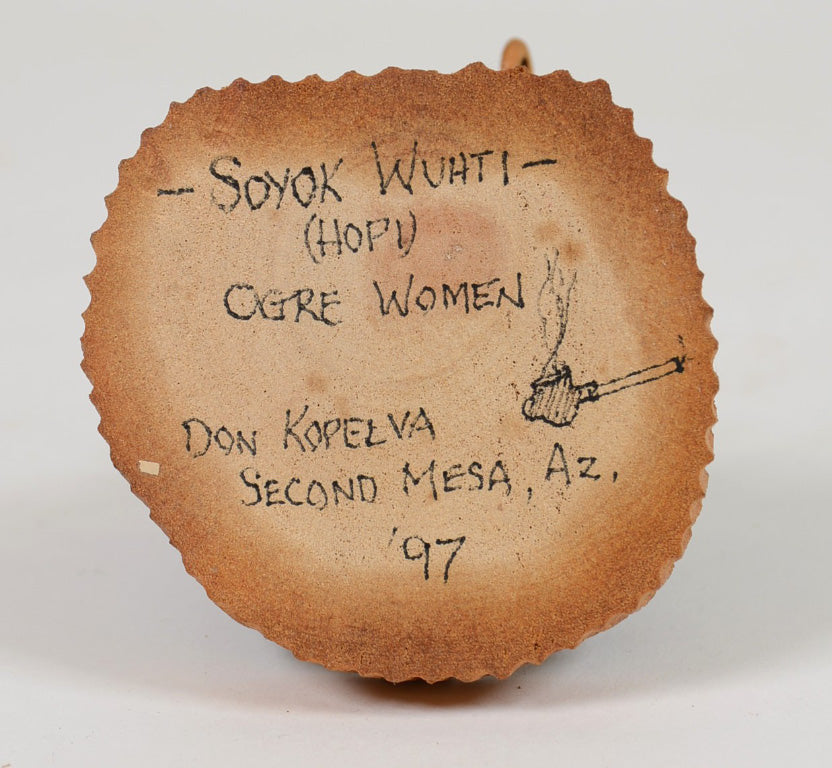 - SOYOK WUHTI -
(HOPI)
OGRE WOMEN
DON KOPELVA
SECOND MESA, AZ.
'97